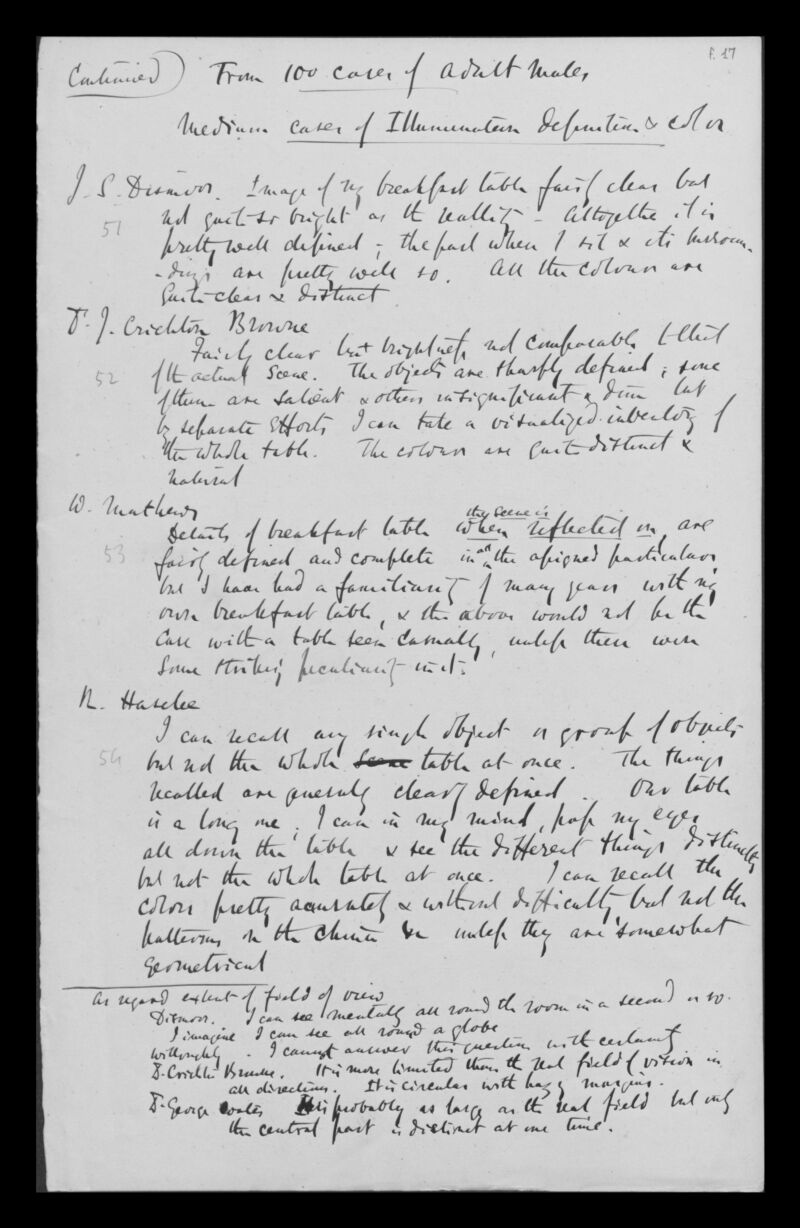 f. 17
Continued) From 100 cases of adult males
Medium cases of Illumination definition & color
J. S. Dismorr. Image of my breakfast table fairly clear but
51 not quite so bright as the reality - Altogether it is
pretty well defined ; the part where I sit & its surroun-
-dings are pretty well so. All the colours are
Quite clear & distinct
Dr. J. Crichton Browne
Fairly clear but brightness not comparable to that
52 of the actual scene. The objects are sharply defined ; some
of them are salient & others insignificant & dim but
by separate efforts I can take a visualized inventory of
the whole table. The colours are quite distinct &
natural
W. Mathews
the scene is
Details of breakfast table when reflected on, are
53 fairly defined and complete in all the assigned particulars
but I have had a familiarity of many years with my
own breakfast table, & the above would not be the
case with a table seen casually, unless there were
some striking peculiarity in it.
54 I can recall any single object or group of objects
but not the whole Scene table at once. The things
recalled are generally clearly defined. Our table
is a long one ; I can in my mind, pass my eyes
all down the table & see the different things distinctly
but not the whole table at once. I can recall the
colors pretty accurately & without difficulty but not the
patterns on the china unless they are somewhat
geometrical
As regard extent of field of view
Dismorr. I can see mentally all round the room in a second or so.
I imagine I can see all round a globe
Willoughby. I cannot answer this question with certainty
Dr. Crichton Browne. It is more limited than the real field of vision in
all directions. It is circular with hazy margins.
Dr. George It is probably as large as the real field but only
the central part is distinct at one time.